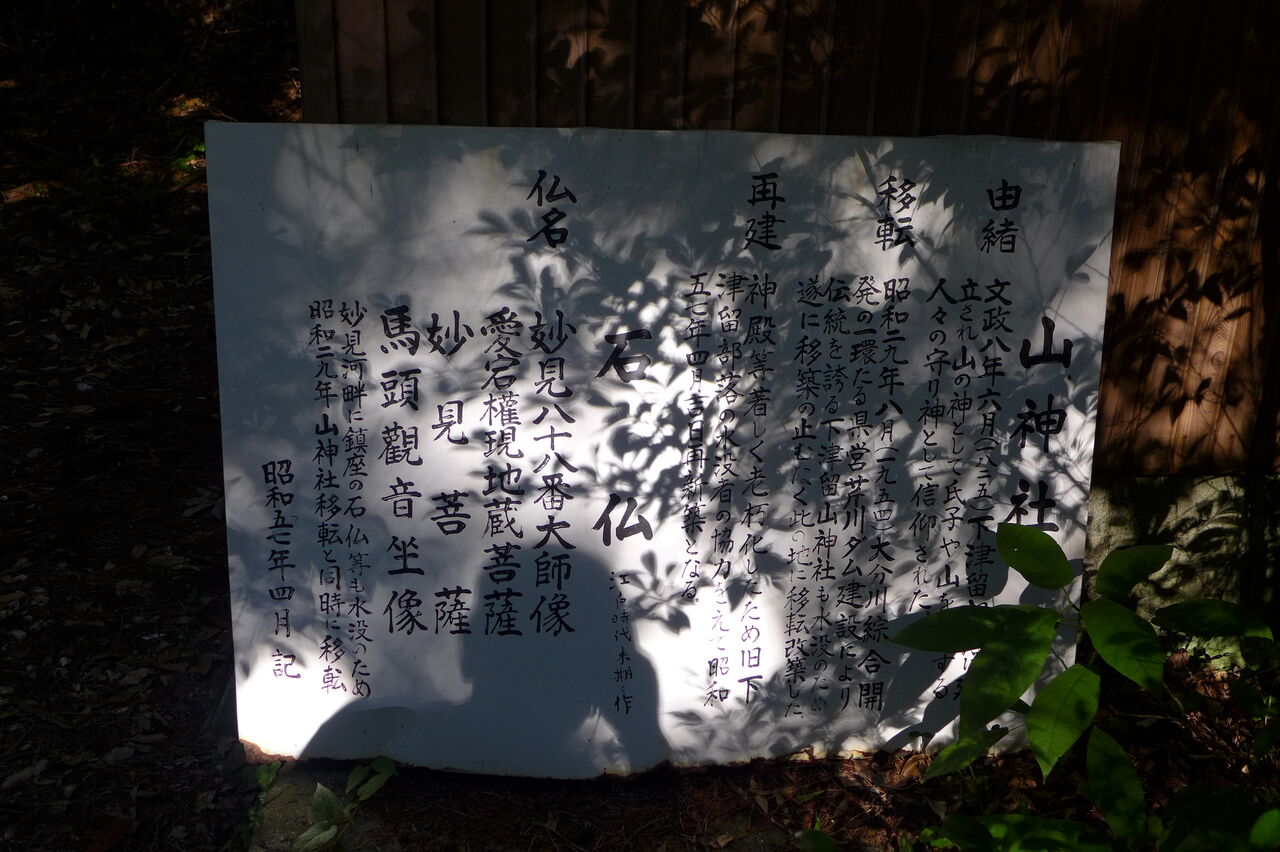 山神社
由緒
文政八年六月(一八二五)下津留
立され山の神として氏子や山を する
人々の守り神として信仰された
移転
昭和二九年八月(一九五四)大分川綜合開
発の一環たる県営芹川ダム建設により
伝統を誇る下津留山神社も水没のため
遂に移築の止むなく此の地に移転改築した
再建
神殿等著しく老朽化したため旧下
津留部落の水没者の協力をえて昭和
五七年四月吉日再新築となる。
石仏 江戸時代末期之作
仏名
妙見八十八番大師像
愛宕權現地蔵菩薩
妙見菩薩
馬頭觀音坐像
妙見河畔に鎮座の石仏等も水没のため
昭和二九年山神社移転と同時に移転
昭和五七年四月 記